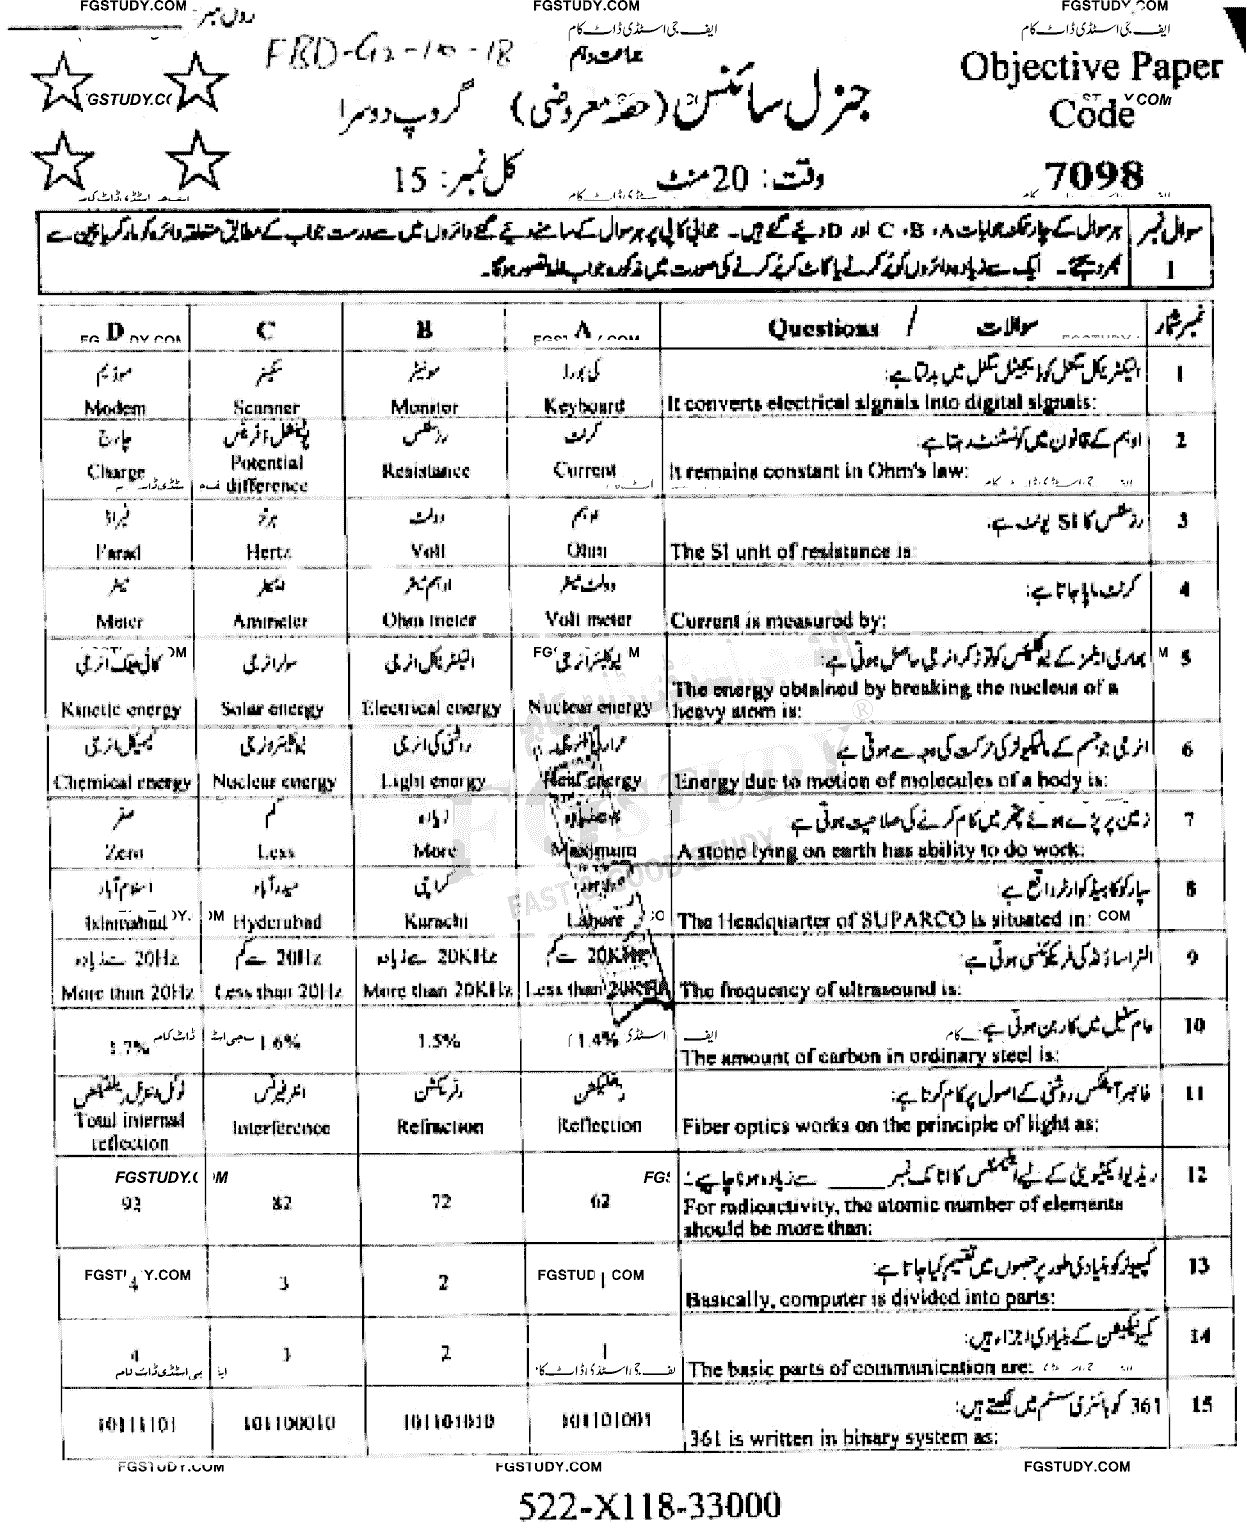 FGSTUDY.COM FGSTUDY.COM FGSTUDY.COM
رول نمبر
ایف جی اسٹڈی ڈاٹ کام ایف جی اسٹڈی ڈاٹ کام
FBD-G2-10-18 جماعت دہم
Objective Paper
Code
7098
جنرل سائنس (حصہ معروضی) گروپ دوسرا
وقت: 20 منٹ کل نمبر: 15
سوال نمبر 1
ہر سوال کے چار ممکنہ جوابات A، B، C اور D دیئے گئے ہیں۔ جوابی کاپی پر ہر سوال کے سامنے دیئے گئے دائروں میں سے درست جواب کے مطابق متعلقہ دائرہ کو مارکر یا پین سے
بھر دیجئے۔ ایک سے زیادہ دائروں کو پُر کرنے یا کاٹ کر پُر کرنے کی صورت میں مذکورہ جواب غلط تصور ہوگا۔
D C B A Questions / سوالات نمبر شمار
موڈیم سکینر مونیٹر کی بورڈ الیکٹریکل سگنل کو ڈیجیٹل سگنل میں بدلتا ہے: 1
Modem Scanner Monitor Keyboard It converts electrical signals into digital signals:
چارج پوٹینشل ڈفرینس رزسٹنس کرنٹ اوہم کے قانون میں کونسٹنٹ رہتا ہے: 2
Charge Potential difference Resistance Current It remains constant in Ohm's law:
فیراڈ ہرٹز وولٹ اوہم رزسٹنس کا SI یونٹ ہے: 3
Farad Hertz Volt Ohm The SI unit of resistance is:
میٹر ایمیٹر اوہم میٹر وولٹ میٹر کرنٹ ماپا جاتا ہے: 4
Meter Ammeter Ohm meter Volt meter Current is measured by:
کائی نیٹک انرجی سولر انرجی الیکٹریکل انرجی نیوکلیئر انرجی بھاری ایٹمز کے نیوکلیئس کو توڑ کر انرجی حاصل ہوتی ہے: 5
Kinetic energy Solar energy Electrical energy Nuclear energy The energy obtained by breaking the nucleus of a
heavy atom is:
کیمیکل انرجی نیوکلیئر انرجی روشنی کی انرجی حرارتی انرجی انرجی جو جسم کے مالیکیولز کی حرکت کی وجہ سے ہوتی ہے 6
Chemical energy Nuclear energy Light energy Heat energy Energy due to motion of molecules of a body is:
صفر کم زیادہ زمین پر پڑے ہوئے پتھر میں کام کرنے کی صلاحیت ہوتی ہے 7
Zero Less More Maximum A stone lying on earth has ability to do work:
اسلام آباد حیدرآباد کراچی لاہور سپارکو کا ہیڈ کوارٹر واقع ہے: 8
Islamabad Hyderabad Karachi Lahore The Headquarter of SUPARCO is situated in:
20Hz سے زیادہ 20Hz سے کم 20KHz سے زیادہ 20KHz سے کم الٹراساؤنڈ کی فریکوئنسی ہوتی ہے: 9
More than 20Hz Less than 20Hz More than 20KHz Less than 20KHz The frequency of ultrasound is:
1.7% 1.6% 1.5% 1.4% عام سٹیل میں کاربن ہوتی ہے: 10
The amount of carbon in ordinary steel is:
ٹوٹل انٹرنل ریفلیکشن انٹرفیرنس رفریکشن رفلیکشن فائبر آپٹکس روشنی کے اصول پر کام کرتا ہے: 11
Total internal reflection Interference Refraction Reflection Fiber optics works on the principle of light as:
ریڈیو ایکٹیویٹی کے لیے ایلیمنٹس کا اٹامک نمبر ______ سے زیادہ ہونا چاہیے: 12
92 82 72 62 For radioactivity, the atomic number of elements
should be more than:
کمپیوٹر کو بنیادی طور پر حصوں میں تقسیم کیا جاتا ہے: 13
4 3 2 1 Basically, computer is divided into parts:
کمیونیکیشن کے بنیادی اجزاء ہیں: 14
4 3 2 1 The basic parts of communication are:
361 کو بائنری سسٹم میں لکھتے ہیں: 15
10111101 101100010 101101010 101101001 361 is written in binary system as:
FGSTUDY.COM FGSTUDY.COM FGSTUDY.COM
522-X118-33000
FGSTUDY
FAST & GOOD STUDY